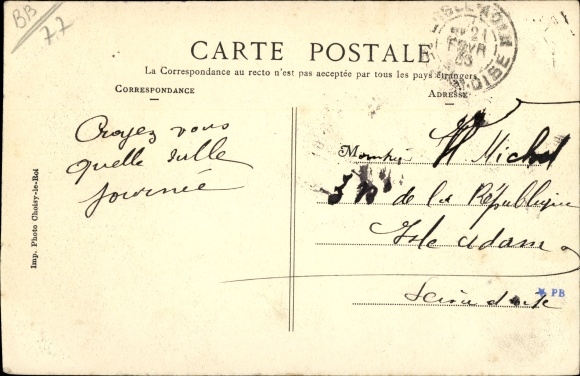 BB
77
CARTE POSTALE
La Correspondance au recto n'est pas acceptée par tous les pays étrangers
CORRESPONDANCE
ADRESSE
Croyez vous
quelle
journée
Imp. Photo Choisy-le-Roi
21
FEVR
OISE
Monsieur H Michel
de la République
Isle adam
Seine et Oise
PB